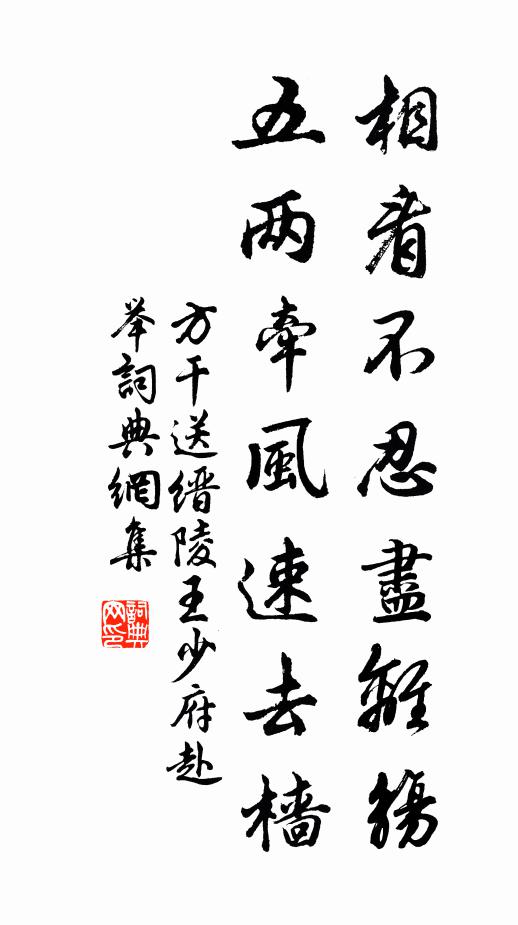 相看不忍盡離觴
五两牽風速去檣
方干送缙陵王少府赴
举詞典網集
詞典网印